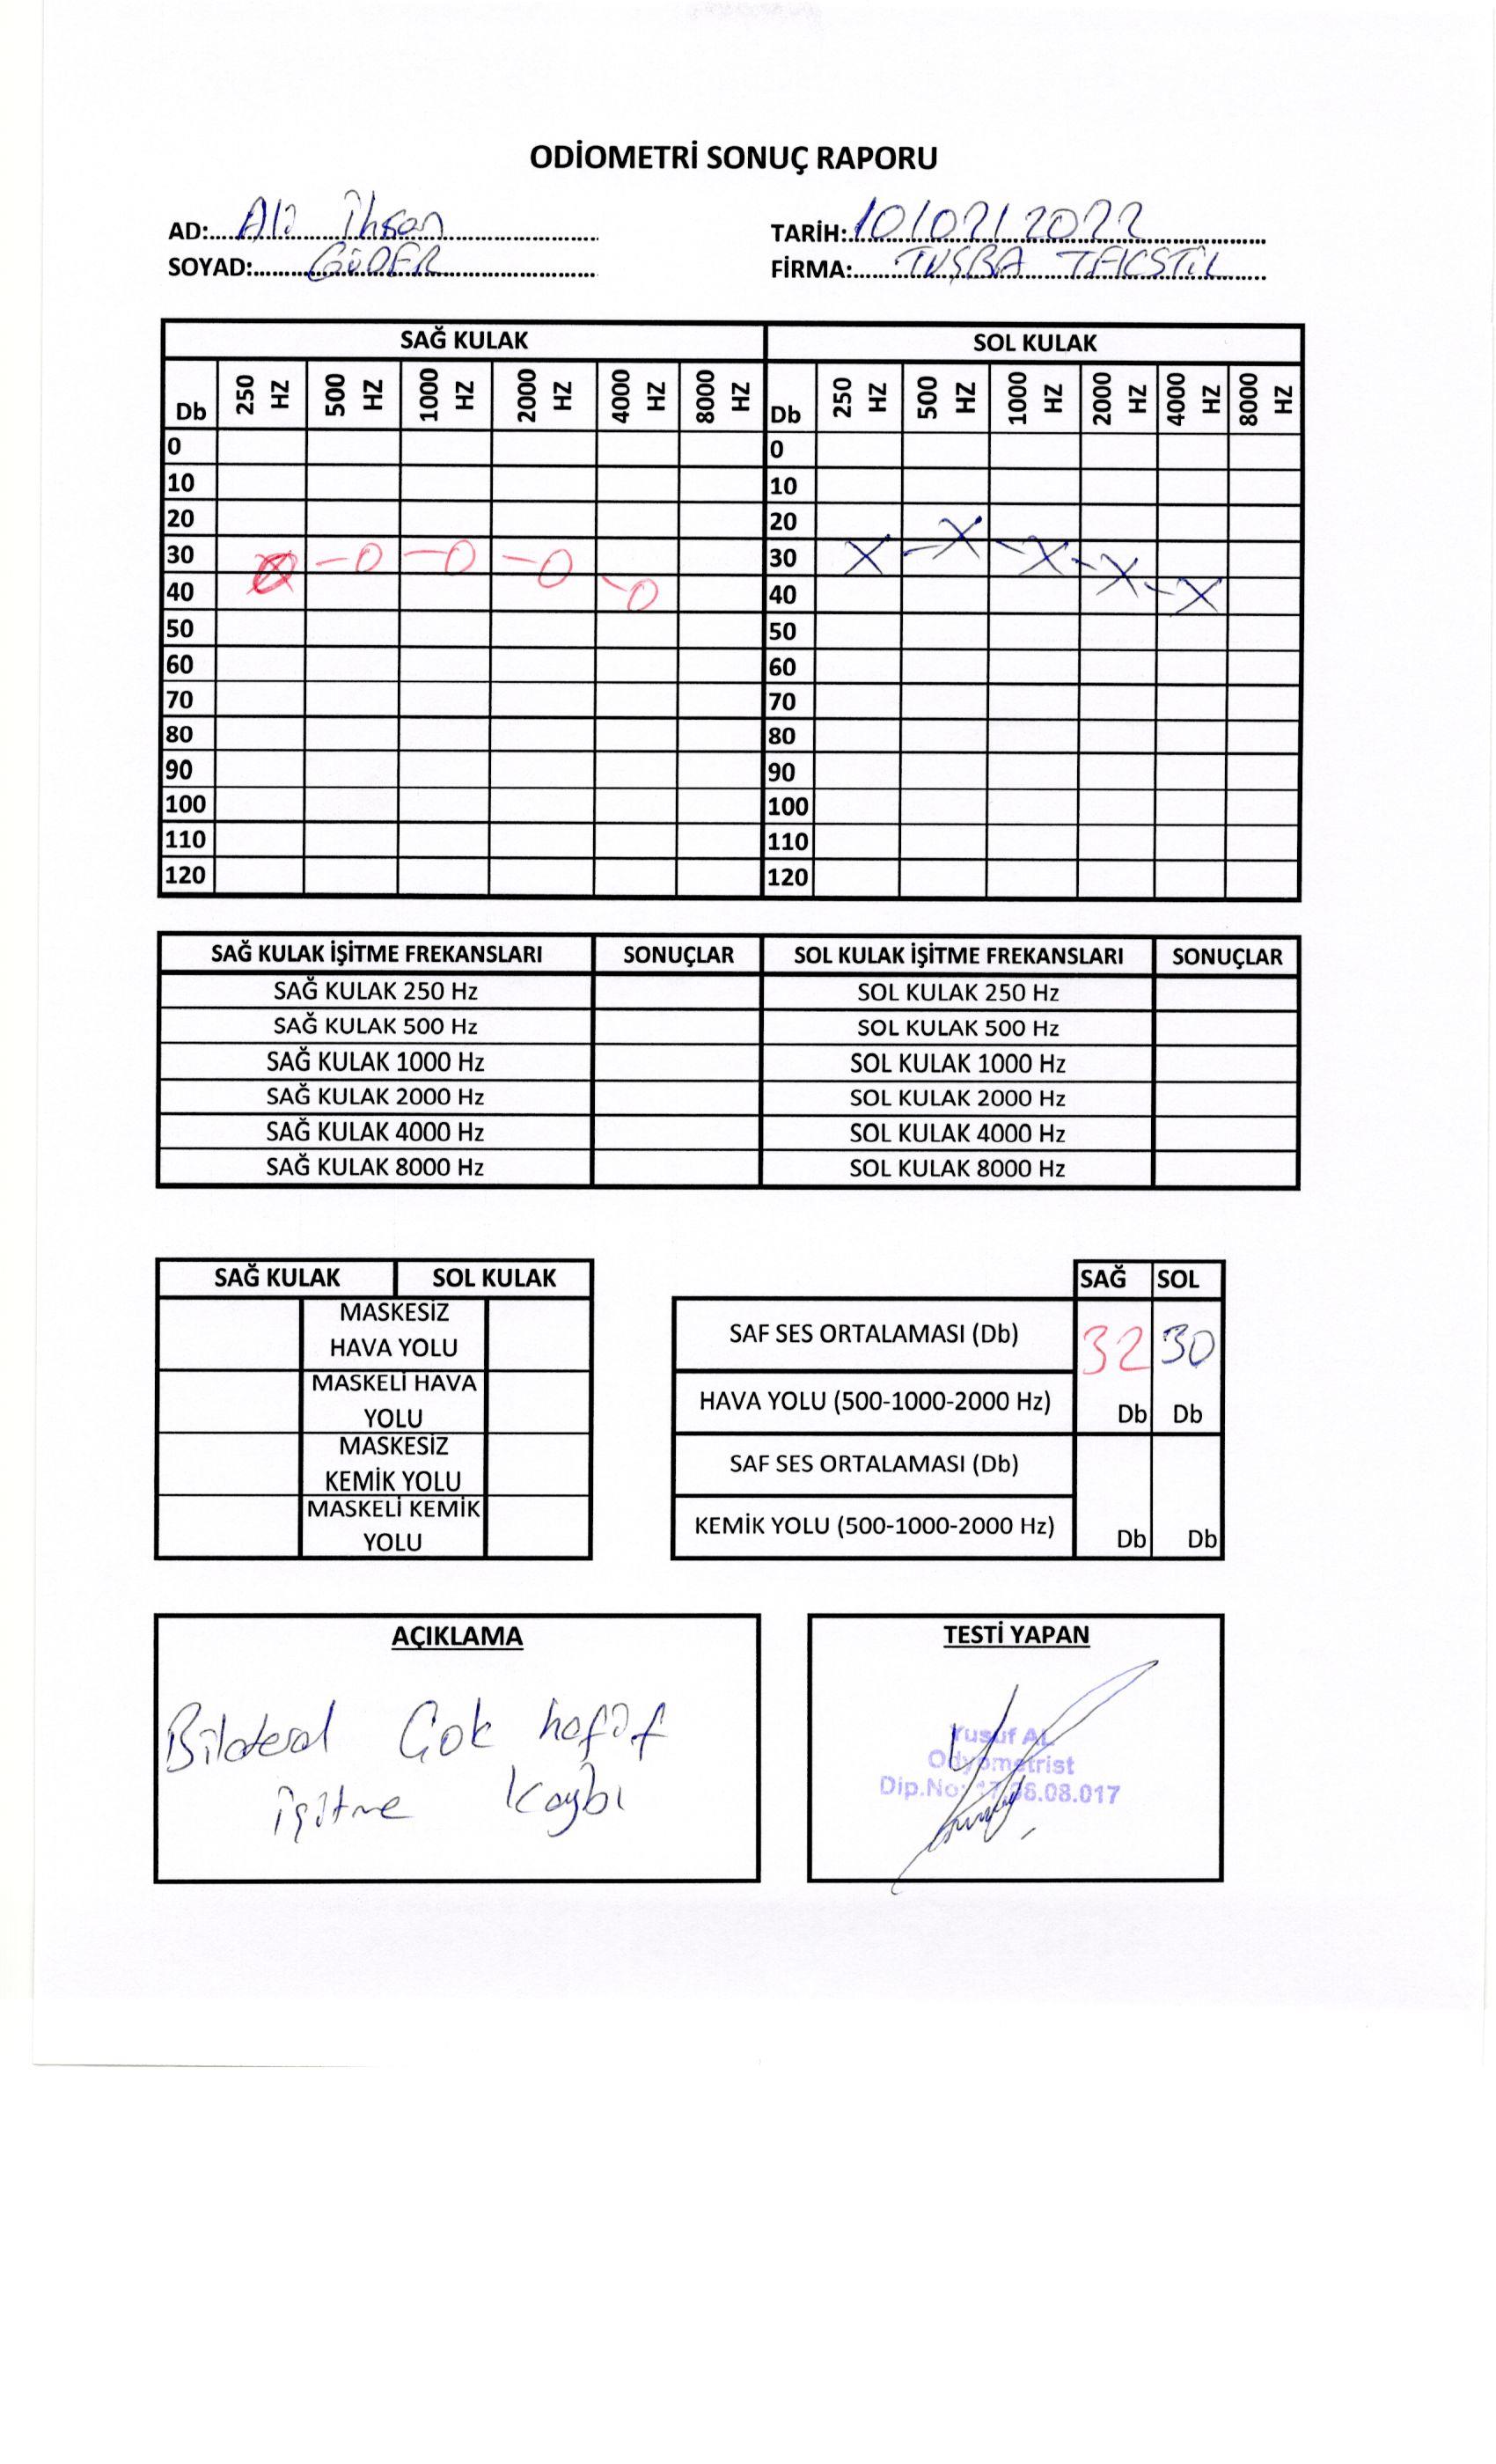 ODİOMETRİ SONUÇ RAPORU
AD: Ali İhsan
TARİH: 10/02/2022
SOYAD: GÜDER
FİRMA: TUŞBA TEKSTİL
SAĞ KULAK SOL KULAK
Db 250 HZ 500 HZ 1000 HZ 2000 HZ 4000 HZ 8000 HZ Db 250 HZ 500 HZ 1000 HZ 2000 HZ 4000 HZ 8000 HZ
0 0
10 10
20 20
30 30
40 40
50 50
60 60
70 70
80 80
90 90
100 100
110 110
120 120
SAĞ KULAK İŞİTME FREKANSLARI SONUÇLAR SOL KULAK İŞİTME FREKANSLARI SONUÇLAR
SAĞ KULAK 250 Hz SOL KULAK 250 Hz
SAĞ KULAK 500 Hz SOL KULAK 500 Hz
SAĞ KULAK 1000 Hz SOL KULAK 1000 Hz
SAĞ KULAK 2000 Hz SOL KULAK 2000 Hz
SAĞ KULAK 4000 Hz SOL KULAK 4000 Hz
SAĞ KULAK 8000 Hz SOL KULAK 8000 Hz
SAĞ KULAK SOL KULAK
MASKESİZ
HAVA YOLU
MASKELİ HAVA
YOLU
MASKESİZ
KEMİK YOLU
MASKELİ KEMİK
YOLU
SAĞ SOL
SAF SES ORTALAMASI (Db) 32 30
HAVA YOLU (500-1000-2000 Hz) Db Db
SAF SES ORTALAMASI (Db)
KEMİK YOLU (500-1000-2000 Hz) Db Db
AÇIKLAMA
Bilateral Çok hafif
işitme kaybı
TESTİ YAPAN
Yusuf AL
Odyometrist
Dip.No: